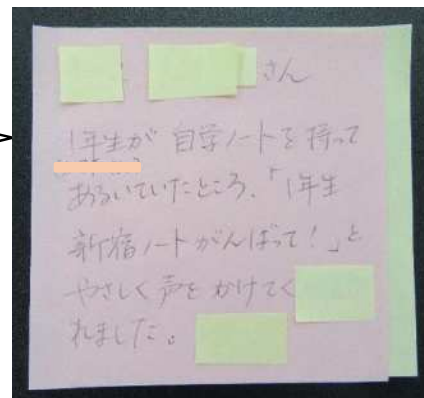 さん
1年生が 自学ノートを持って
あるいていたところ、「1年生
新宿ノートがんばって!」と
やさしく声をかけてく
れました。